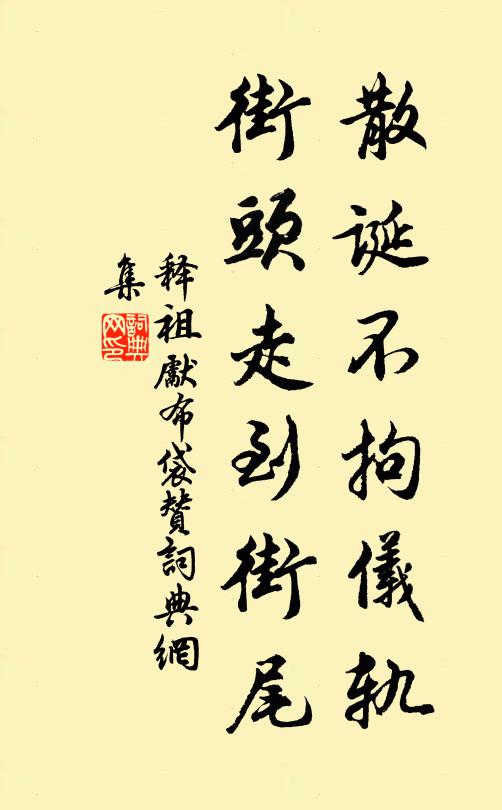 散誕不拘儀軌
街頭走到街尾
释祖獻布袋贊詞典網
集
詞典網印